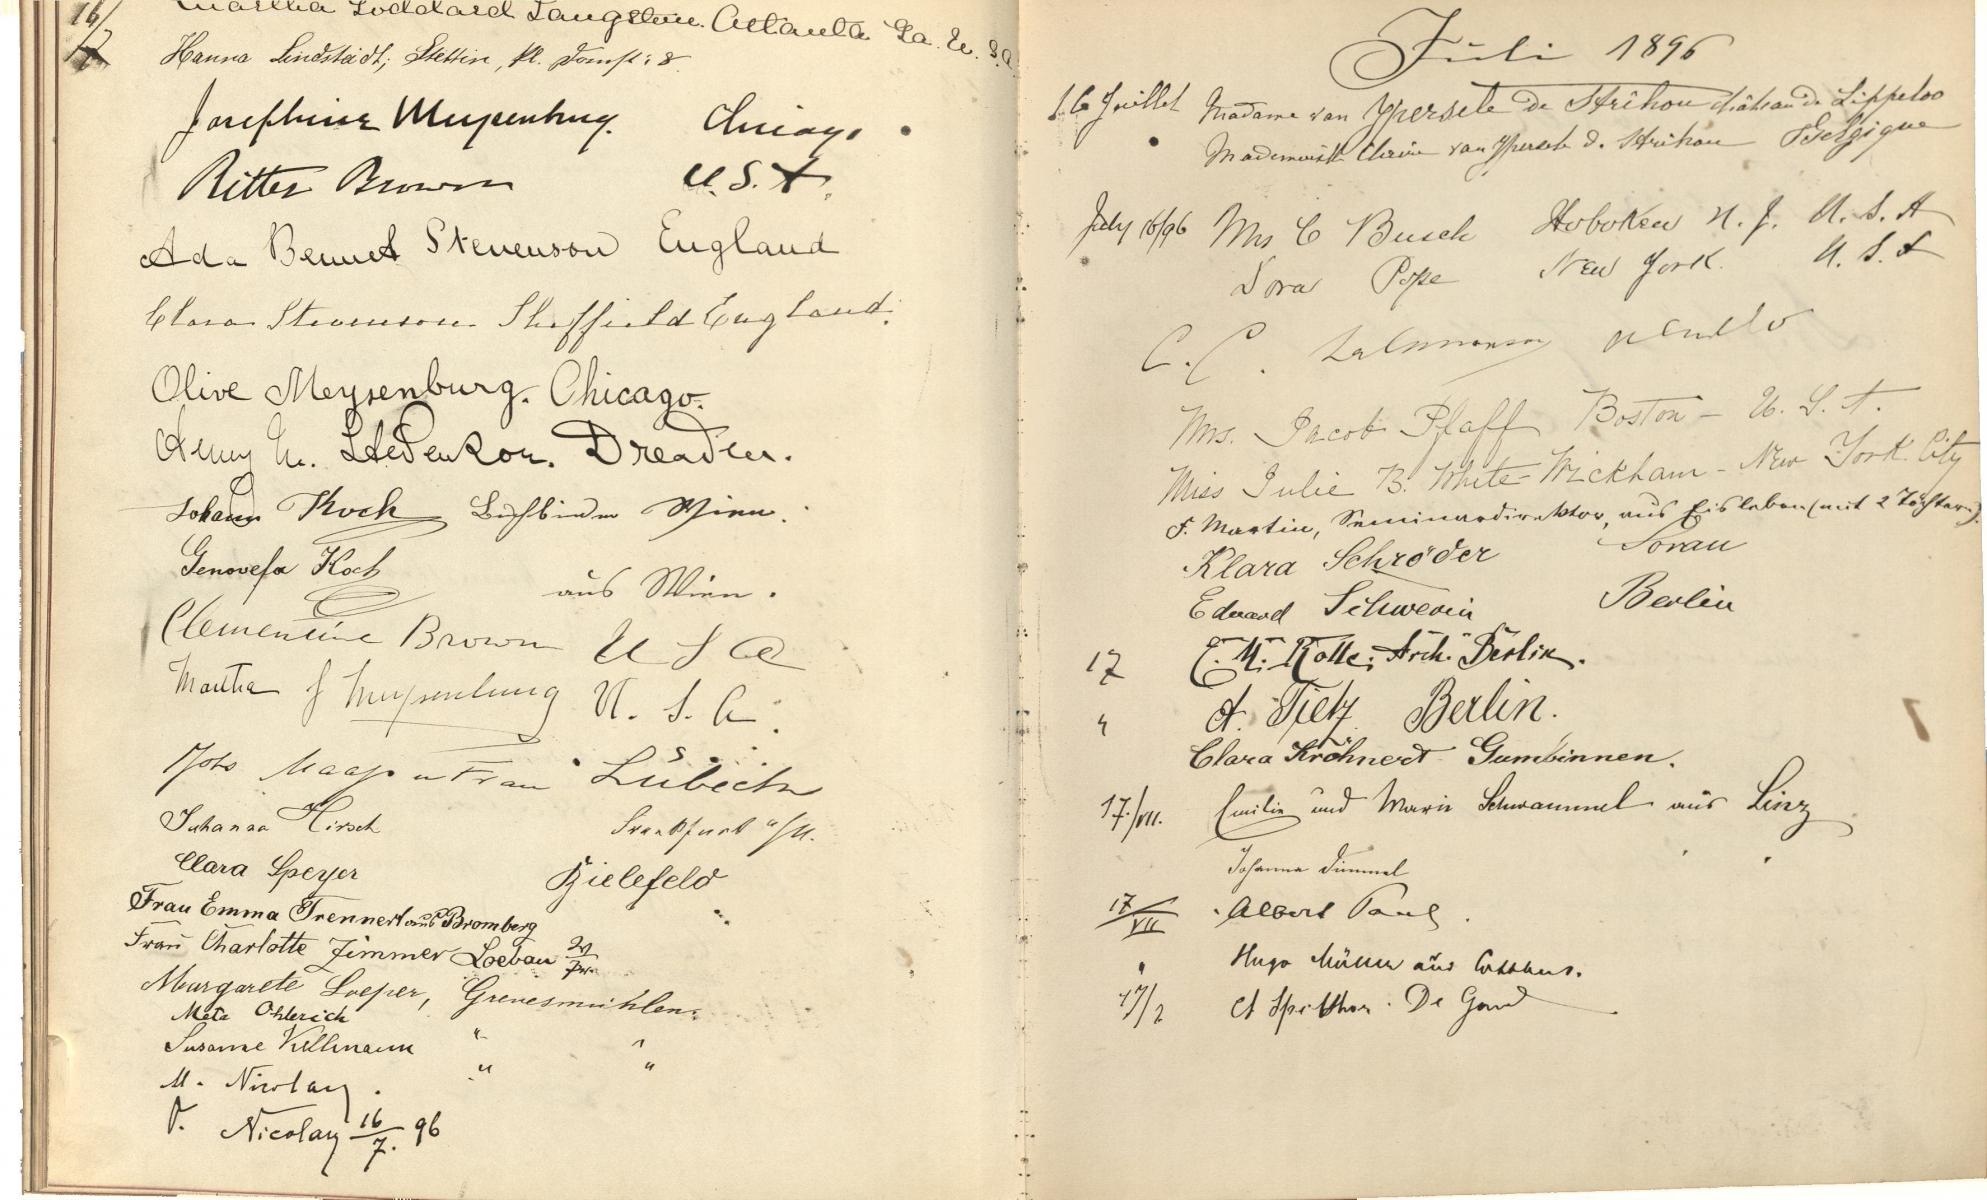 16/
17
Martha Goddard Langston. Atlanta Ga. U. S. A
Hanna Lindstädt, Stettin, 8
Josephine Meysenburg. Chicago
Ritter Brown U.S.A.
Ada Bennet Stevenson England
Clara Stevenson Sheffield England.
Olive Meysenburg. Chicago.
Dresden.
Johann Koch Buchbinder Wien.
Genovefa Koch
aus Wien.
Clementine Brown U S A
Martha J Meysenburg U. S. A.
u Frau Lübeck
Johanna Hirsch Frankfurt a/M.
Clara Speyer Bielefeld
Frau Emma Trennert aus Bromberg
Frau Charlotte Zimmer Loebau
Margarete Loeper, Grevesmühlen.
Meta Ohlerich
Susanne Killmann " "
M. Nicolay. " "
Nicolay 16/7. 96
Juli 1896
16 Juillet Madame van Ypersele de Strihou château de Lippeloo
" Mademoiselle van Ypersele d. Strihou Belgique
July 16/96 Mrs C Busch Hoboken N. J. U. S. A
" Dora Pope New York. U. S. A
C. C.
Mrs. Jacob Pfaff Boston - U. S. A.
Miss Julie B. White-Wickham - New York City
F. Martin, Seminardirektor, aus Eisleben (mit 2 Töchtern).
Klara Schröder Sorau
Eduard Schwerin Berlin
17 E. M. Arch. Berlin.
" A. Tietz Berlin.
Clara Kröhnert Gumbinnen.
17./VII. Emilie und Marie Schwammel aus Linz
Johanna " "
17/VII Albert
" Hugo Müller aus Cottbus.
17/7 A De Gand